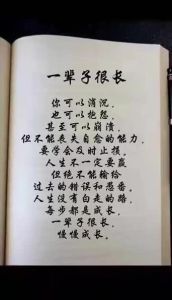 一辈子很长
你可以消沉，
也可以抱怨，
甚至可以崩溃，
但不能丧失自愈的能力，
要学会及时止损。
人生不一定要赢
但绝不能输给
过去的错误和忍耐。
人生没有白走的路，
每步都是成长，
一辈子很长，
慢慢成长。